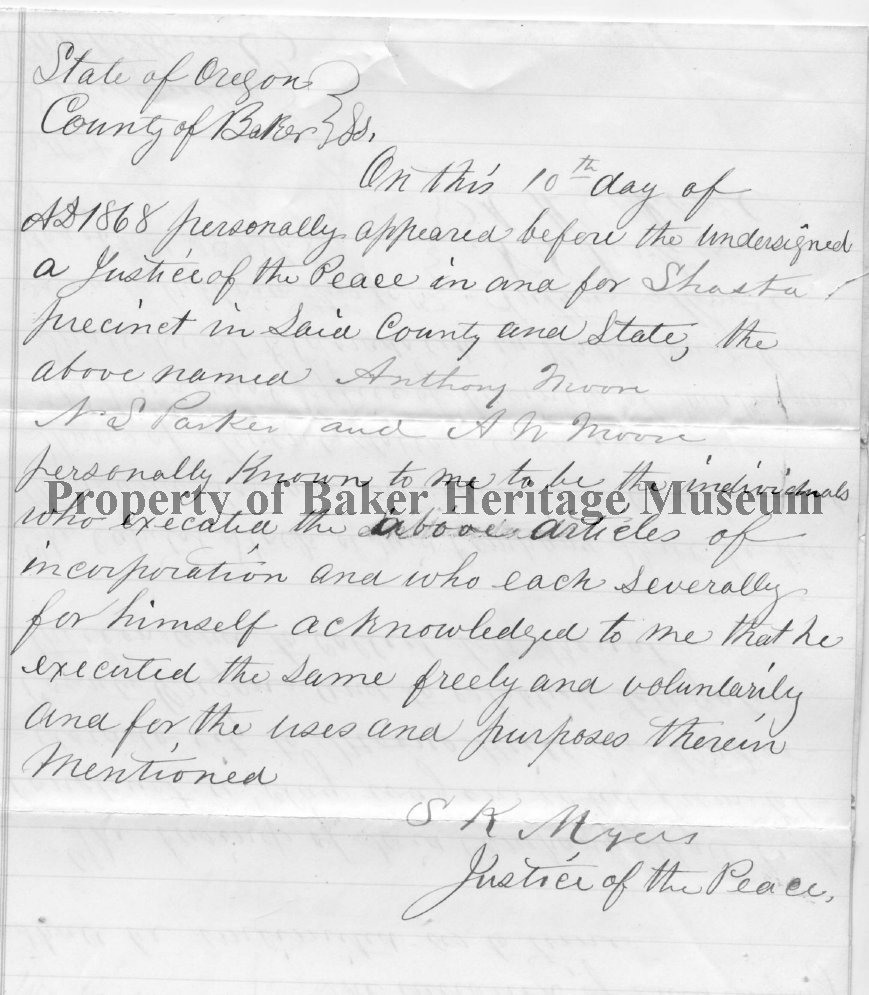 State of Oregon }
County of Baker } SS.
On this 10th day of
AD 1868 personally appeared before the undersigned
a Justice of the Peace in and for Shasta
precinct in Said County and State, the
above named Anthony Moore
N S Parker and A W Moore
personally Known to me to be the individuals
Property of Baker Heritage Museum
who executed the above articles of
incorporation and who each severally
for himself acknowledged to me that he
executed the same freely and voluntarily
and for the uses and purposes therein
Mentioned
S K Myers
Justice of the Peace.